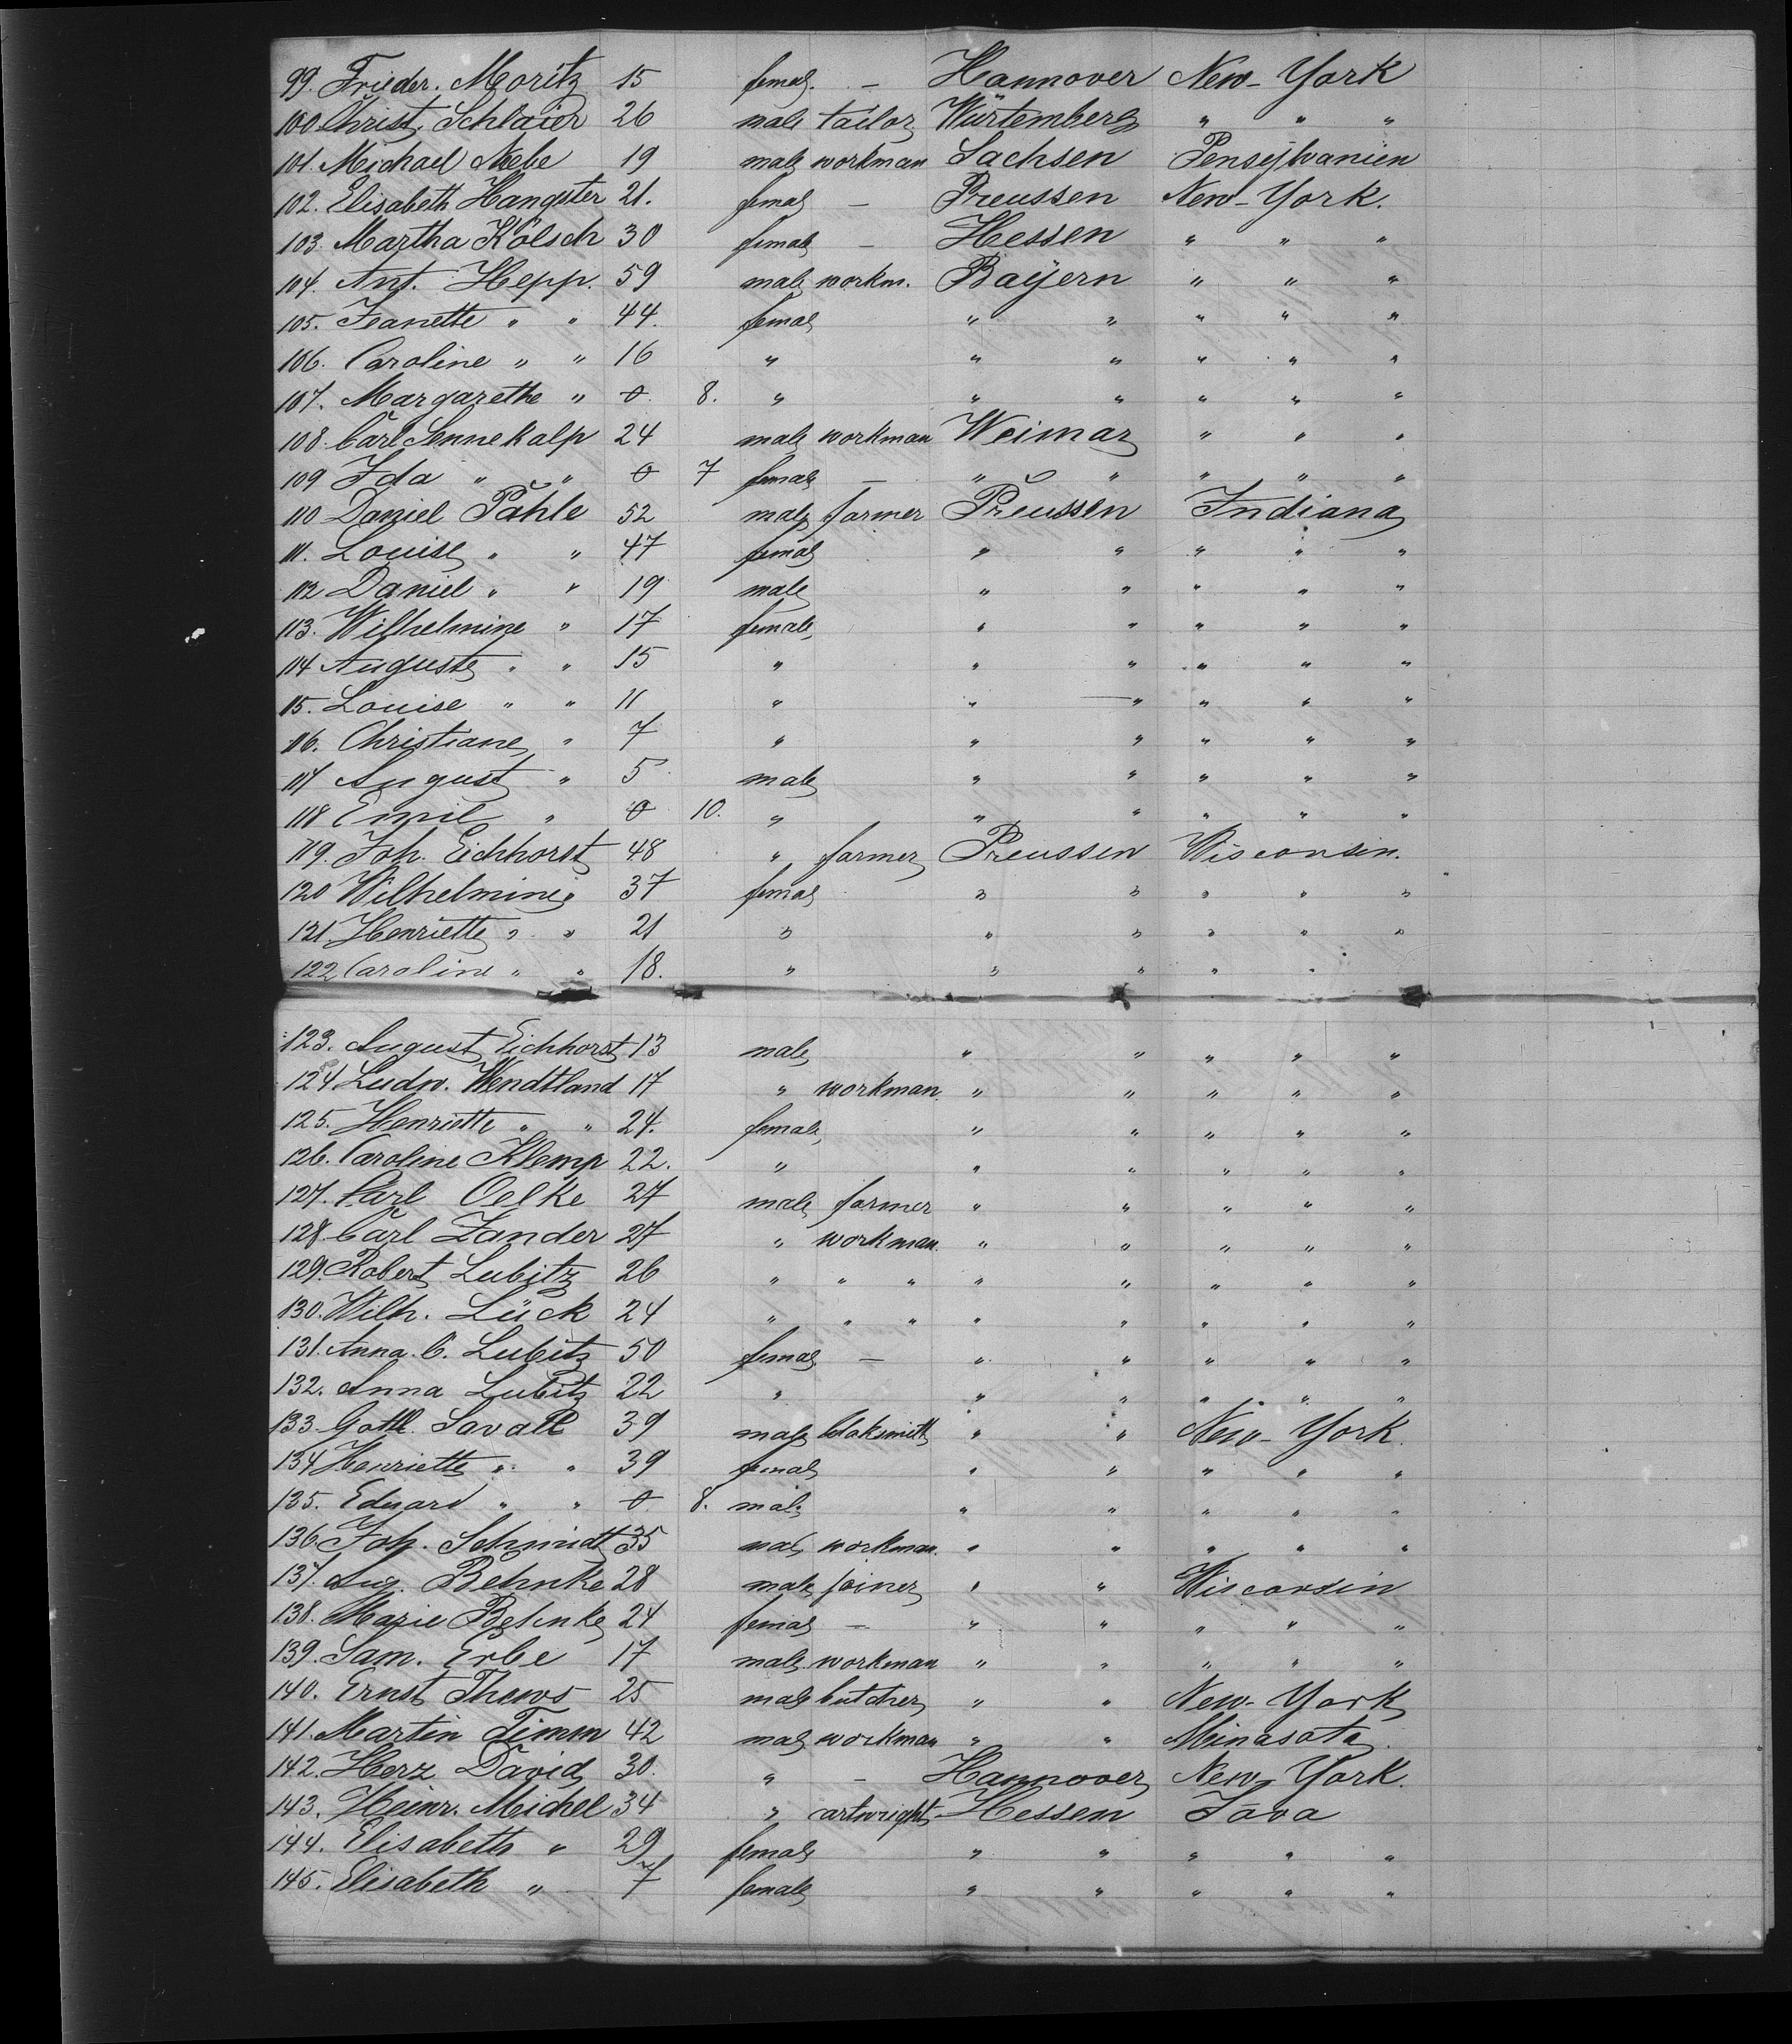 99. Frieder. Moritz 15 female. — Hannover New-York
100 Christ. Schlaier 26 male tailor Würtemberg " " "
101. Michael Nebe 19 male workman Sachsen Pensÿlvanien
102. Elisabeth Hangster 21. female — Preussen New-York.
103. Martha Kölsch 30 female — Hessen " " "
104. Ant. Hepp. 59 male workm. Baÿern " " "
105. Jeanette " " 44. female " " " " "
106. Caroline " " 16 " " " " " "
107. Margarethe " 0 8. " " " " " "
108. Carl Sennekalp 24 male workman Weimar " " "
109 Ida " " 0 7 female — " " " " "
110 Daniel Pahle 52 male farmer Preussen Indiana
111. Louise " " 47 female " " " " "
112 Daniel " " 19 male " " " " "
113. Wilhelmine " 17 female " " " " "
114 Auguste " " 15 " " " " " "
115. Louise " " 11 " " " " " "
116. Christiane " 7 " " " " " "
117 August " 5 male " " " " "
118 Emil " 0 10. " " " " " "
119. Joh. Eichhorst 48 " farmer Preussen Wisconsin.
120 Wilhelmine 37 female " " " " "
121. Henriette " " 21 " " " " " "
122 Caroline " " 18. " " " " "
123. August Eichhorst 13 male " " " " "
124. Ludw. Wendtland 17 " workman. " " " " "
125. Henriette " " 24. female " " " " "
126. Caroline Klemp 22. " " " " " "
127. Carl Oelke 27 male farmer " " " " "
128. Carl Zander 27 " workman. " " " " "
129. Robert Lubitz 26 " " " " " " " "
130. Wilh. Lück 24 " " " " " " " "
131. Anna C. Lubitz 50 female — " " " " "
132. Anna Lubitz 22 " " " " " "
133. Gottl. Savall 39 male blaksmith " " New-York.
134 Henriette " " 39 female " " " " "
135. Eduard " " 0 8. male " " " " "
136. Joh. Schmidt 35 male workman. " " " " "
137. Aug. Behnke 28 male joiner " " Wisconsin
138. Marie Behnke 24 female — " " " " "
139. Sam. Erbe 17 male workman " " " " "
140. Ernst Thews 25 male butcher " " New-York
141. Martin Timm 42 male workman " " Minasota.
142. Herz David 30. " — Hannover New-York.
143. Heinr. Michel 34 " artwright Hessen Java
144. Elisabeth " 29 female " " " " "
145. Elisabeth " 7 female " " " " "